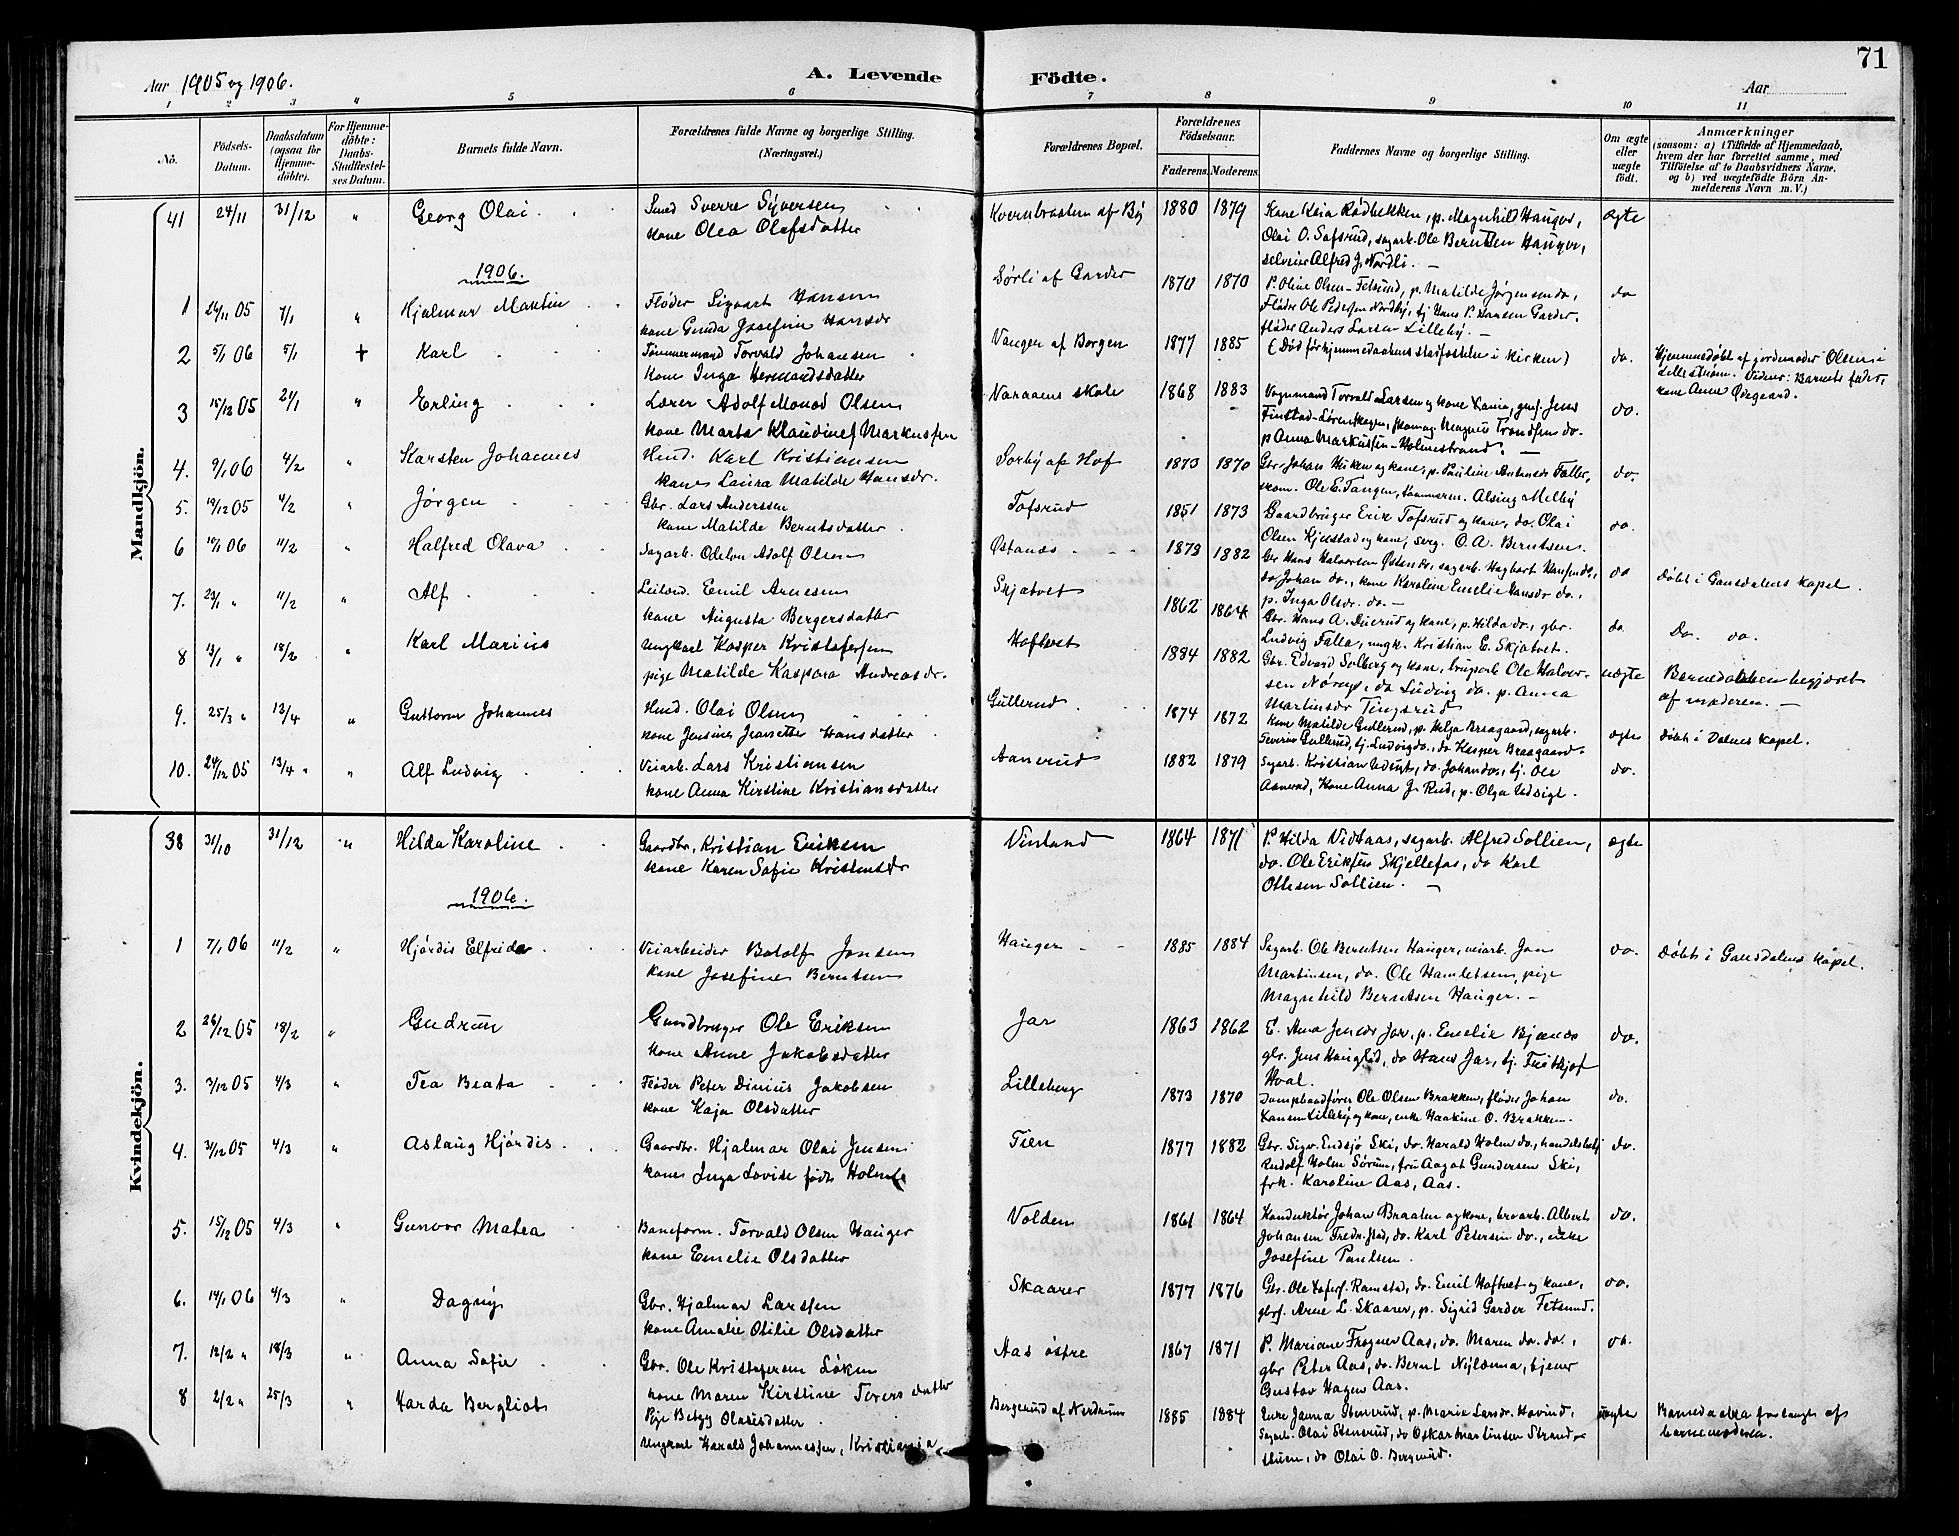 71
Aar 1905 og 1906.
A. Levende Födte.
Aar
1 2 3 4 5 6 7 8 9 10 11
No.
Födsels-Datum.
Daabsdatum (ogsaa for Hjemme-döbte).
For Hjemme-döbte: Daabs-Stadfæstel-ses Datum.
Barnets fulde Navn.
Forældrenes fulde Navne og borgerlige Stilling. (Næringsvei.)
Forældrenes Bopæl.
Forældrenes Födselsaar.
Faderens. Moderens.
Faddernes Navne og borgerlige Stilling.
Om ægte eller uægte födt.
Anmærkninger
(saasom: a) i Tilfælde af Hjemmedaab, hvem der har forrettet samme, med Tilföielse af to Daabsvidners Navne, og b) ved uægtefödte Börn An-melderens Navn m. V.)
Mandkjön.
41 24/11 31/12 " Georg Olai
Smed Sverre Syversen
kone Olea Olafsdatter
Kvernbraaten af Bø 1880 1879
Kone Kaia Rødbekken, p. Magnhild Hauger,
Olai O. Tofsrud, sagarb. Ole Berntsen Hauger,
selveier Alfred J. Nordli. —
ægte
1906.
1 26/11 05 7/1 " Hjalmar Martin
Fløder Sigvart Hansen
kone Gunda Josefine Hansdr
Sørli af Garder 1870 1870
P. Oline Olsen-Fetsund, p. Matilde Jørgensen do,
Fløder Ole Pedersen Nordby, tj Hans P. Hansen Garder,
fløder Anders Larsen Lilleby. —
do
2 5/1 06 5/1 † Karl
Tømmermand Torvald Johansen
kone Inga Hermandsdatter
Vangen af Borgen 1877 1885
(Død før hjemmedaabens stadfæstelse i kirken)
do.
Hjemmedøbt af jordemoder Olsen i
Lillestrøm. Vidner: Barnets fader,
kone Anne Ødegaard.
3 15/12 05 21/1 " Erling
Lærer Adolf Monod Olsen
kone Marta Klaudine f Markussen
Varaaens skole 1868 1883
Vognmand Torvald Larsen og kone
p Anna Markussen-Holmestrand. —
do.
4. 9/1 06 4/2 " Karsten Johannes
Hmd. Karl Kristiansen
kone Laura Matilde Hansdr.
Sorby af Hof 1873 1870
skom. Ole E. Tangen, Alsing Melby
do.
5. 19/12 05 4/2 " Jørgen
Gbr. Lars Anderssen
kone Matilde Berntsdatter
Tofsrud 1851 1873
Gaardbruger Erik Tofsrud og kone, do. Olai
Olsen Kjelstad og kone, O. A. Berntsen.
do.
6 10/1 06 11/2 " Halfred Olava
Sagarb. Adolf Olsen
Østanes 1873 1882
Gbr Hans Halvorsen Østnes, sagarb. Hagbart Hansen do.,
do Johan do., kone Karoline Emelie Hansdr do.,
p. Inga Olsdr. do. —
do
døbt i Gansdalens kapel.
7. 23/1 " 11/2 " Alf
Leilend. Emil Arnesen
kone Augusta Bergersdatter
Skjatvet 1862 1864
Gbr. Hans A. Duerud og kone, p. Hilda do., gbr.
Ludvig Falla, ungk. Kristian E. Skjatvet.
do
Do. do.
8 13/1 " 18/2 " Karl Marius
Ungkarl Kasper Kristofersen
pige Matilde Kaspara Andreasdr.
Hoftvet 1884 1882
Gbr. Edvard Solberg og kone, Ole Halvor-
sen do Ludvig do. p. Anna
Martinsdr Tingsrud
uægte
Barnedaaben begjæret
af moderen. —
9. 25/3 " 13/4 " Guttorm Johannes
Hmd. Olai Olsen
kone Jensine Jeanette Hansdatter
Gullerud 1874 1872
Kone Matilde Gullerud, p. Helga Braagaard, sagarb.
Severin Gullerud, tj. Ludvig do., do Kasper Braagaard.
ægte
døbt i Dalens kapel.
10. 24/12 05 13/4 " " Alf Ludvig
Veiarb. Lars Kristiansen
kone Anna Kirstine Kristiansdatter
Aanerud 1882 1879
Sagarb. Kristian Udsigt, do. Johan do., tj. Ole
Aanerud, Kone Anna J. Rud, p. Olga Udsigt.
do.
Kvindekjön.
38 31/10 31/12 " Hilda Karoline
Gaardbr. Kristian Eriksen
kone Karen Sofie Kristensdr
Vinland 1864 1871
P. Hilda Vidtaas, sagarb. Alfred Sollien,
do. Ole Eriksen Skjellefos, do Karl
Ottesen Sollien. —
ægte
1906.
1 7/1 06 11/2 " Hjördis Elfrida
Veiarbeider Botolf Jonsen
kone Josefine Berntsen
Hauger 1885 1884
Sagarb. Ole Berntsen Hauger, veiarb. Jon
Martinsen, do. Ole Hamletsen, pige
Magnhild Berntsen Hauger. —
do.
Døbt i Gansdalens kapel.
2 26/12 05 18/2 " Gudrun
Gaardbruger Ole Eriksen
kone Anne Jakobsdatter
Jar 1863 1862
E. Anna Jensdr Jar, p. Emelie Bjanes
gbr. Jens Hauglid, do Hans Jar, tj. Fritjof
Hval.
do.
3. 3/12 05 4/3 " Tea Beata
Fløder Peter Dinius Jakobsen
kone Kaja Olsdatter
Lilleberg 1873 1870
Dampbaadfører Ole Olsen Brakken, fløder Johan
Hansen Lilleby og kone, enke Haakine O. Brakken.
do.
4. 3/12 05 4/3 " Aslaug Hjördis
Gaardbr. Hjalmar Olai Jensen
kone Inga Lovise født Holm
Tien 1877 1882
Gbr. Sigv. Endsjø Ski, do. Harald Holm do., handelsbetj
Rudolf Holm Sørum, fru Aagot Gundersen Ski,
frk. Karoline Aas, Aas.
do.
5. 15/12 05 4/3 " Gunvor Matea
Baneform. Torvald Olsen Hauger
kone Emelie Olsdatter
Volden 1861 1864
Konduktør Johan Braaten og kone, broarb. Albert
Johansen Fredr.stad, do. Karl Petersen do., enke
Josefine Paulsen.
do.
6. 14/1 06 4/3 " Dagny
Gbr. Hjalmar Larssen
kone Amalie Otilie Olsdatter
Skaarer 1877 1876
Gbr. Ole Ramstad, do. Emil Hoftvet og kone,
gbrs. Arne L. Skaarer, p. Sigrid Garder Fetsund.
do.
7. 12/2 " 18/3 " Anna Sofie
Gbr. Ole Kristofersen Løken
kone Maren Kirstine Toversdatter
Aas østre 1867 1871
P. Mariane Frogner Aas, do. Maren do. do.,
gbr Peter Aas, do. Bernt Nylænna, tjener
Gustav Hagen Aas.
do.
8 2/2 " 25/3 " Harda Bergliot
Pige Betzy Olausdatter.
Ungkarl Harald Johannessen, Kristiania
Bergerud af Nordrum 1885 1884
Enke Janna Stenerud, p. Marie Larsdr. Hovind,
Sagarb. Olai Stensrud, do Oskar Martinsen Strand-
stuen, do Olai O. Bergerud.
uægte
Barnedaaben forlangt af
barnemoderen.